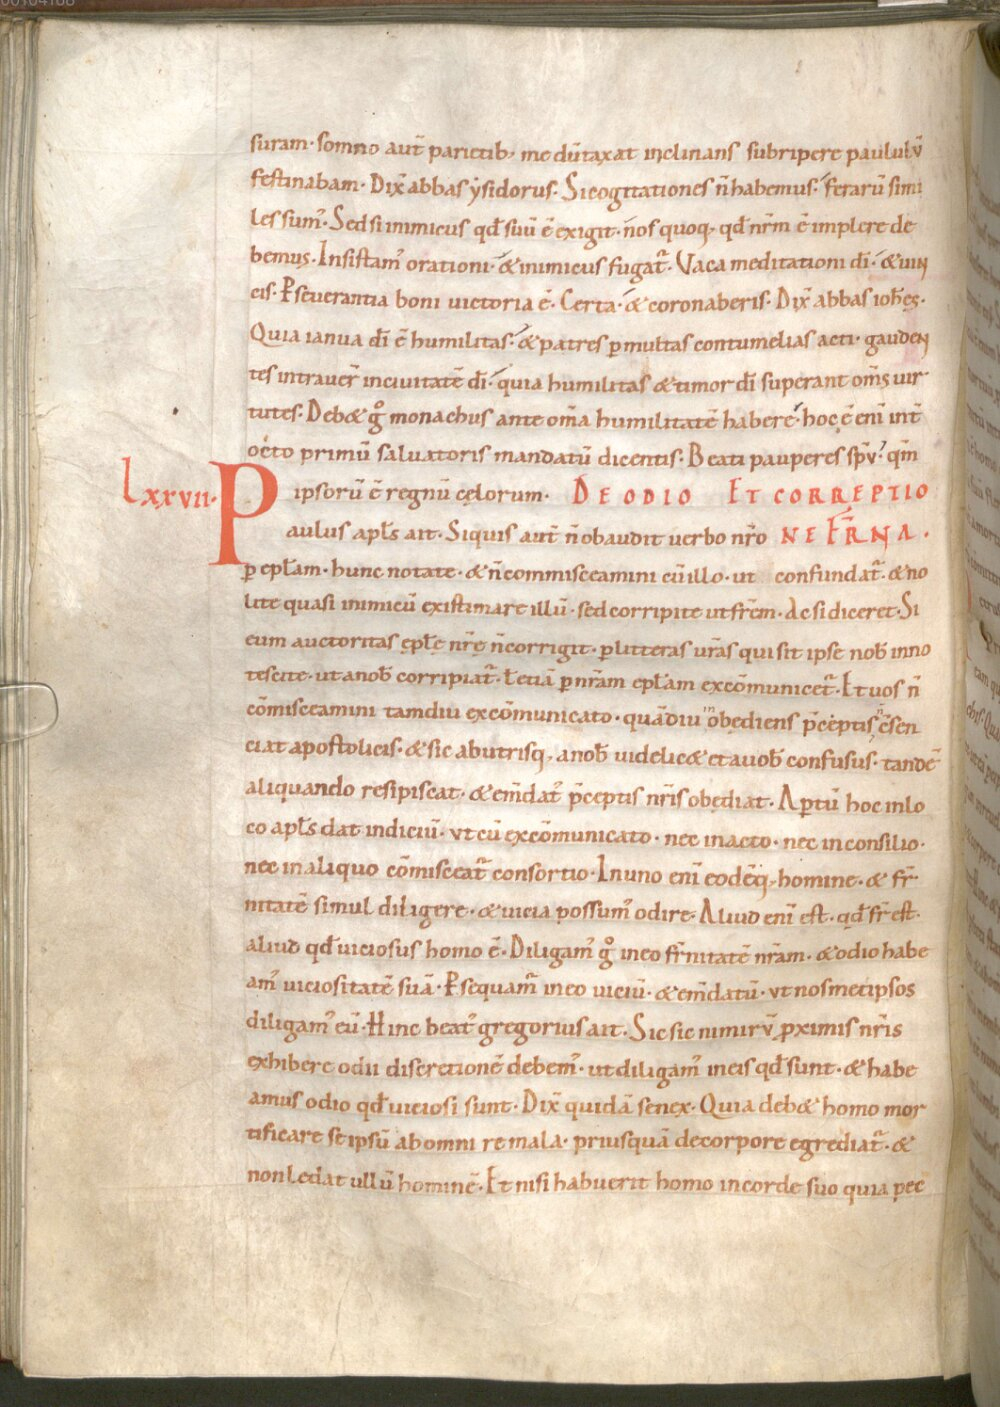 suram· somno aut̄ parietib; me dūtaxat inclinans subripere paululū
festinabam· Dix̄ abbas ẏsidorus· Si cogitationes n̄ habemus· ferarū simi
les sumꝰ· Sed si inimicus qd̄ suū ē exigit· nos quoq; qd̄ nr̄m ē implere de
bemus· Insistamꝰ orationi· & inimicus fugat̄· Vaca meditationi dī· & uin
cis· Ꝑseuerantia boni uictoria ē· Certa· & coronaberis· Dix̄ abbas ioh̄es·
Quia ianua dī ē humilitas· & patres ꝑ multas contumelias acti· gauden
tes intrauer̄ in ciuitatē dī· quia humilitas & timor dī superant om̄s uir
tutes· Deb& gͦ monachus ante om̄a humilitatē habere· hoc ē enī int̄
octo primū saluatoris mandatū dicentis· Beati pauperes sp̄ū· qm̄
ipsorū ē regnū cęlorum· DE ODIO ET CORREPTIO
lxxvii· Paulus apl̄s ait· Siquis aut̄ n̄ obaudit uerbo nr̄o NE FR̄NA·
ꝑ epl̄am· hunc notate· & n̄ commisceamini cū illo· ut confundat̄· & no
lite quasi inimicū existimare illū· sed corripite ut fr̄em· Ac si diceret· Si
eum auctoritas epl̄ę nr̄ę n̄ corrigit· ꝑ litteras ur̄as qui sit ipse nob̄ inno
tescite· ut a nob̄ corripiat̄· ł etiā ꝑ nr̄am epl̄am excōmunicet̄· Et uos n̄
cōmisceamini tamdiu excōmunicato· quādiu inobędiens p̄ceptis n̄ cōsen
ciat apostolicis· & sic ab utrisq; a nob̄ uidelic& et a uob̄ confusus· tandē
aliquando resipiscat· & em̄datꝰ p̄ceptis nr̄is obędiat· Aꝑtū hoc in lo
co apl̄s dat indiciū· ut cū excōmunicato· nec in acto· nec in consilio·
nec in aliquo cōmisceat̄ consortio· In uno enī eodēq; homine· & fr̄
nitatē simul diligere· & uicia possumꝰ odire· Aliud enī est· qd̄ fr̄ est·
aliud qd̄ uiciosus homo ē· Diligamꝰ gͦ in eo fr̄nitatē nr̄am· & odio habe
amꝰ uiciositatē suā· Ꝑsequamꝰ in eo uiciū· & em̄datū· ut nosmetipsos
diligamꝰ eū· Hinc beatꝰ gregorius ait· Sic sic nimirū proximis nr̄is
exhibere odii discretionē debemꝰ· ut diligamꝰ in eis qd̄ sunt· & habe
amus odio qd̄ uiciosi sunt· Dix̄ quidā senex· Quia deb& homo mor
tificare se ipsū ab omni re mala· priusquā de corpore egrediat̄· &
non lędat ullū hominē· Et nisi habuerit homo in corde suo quia pec